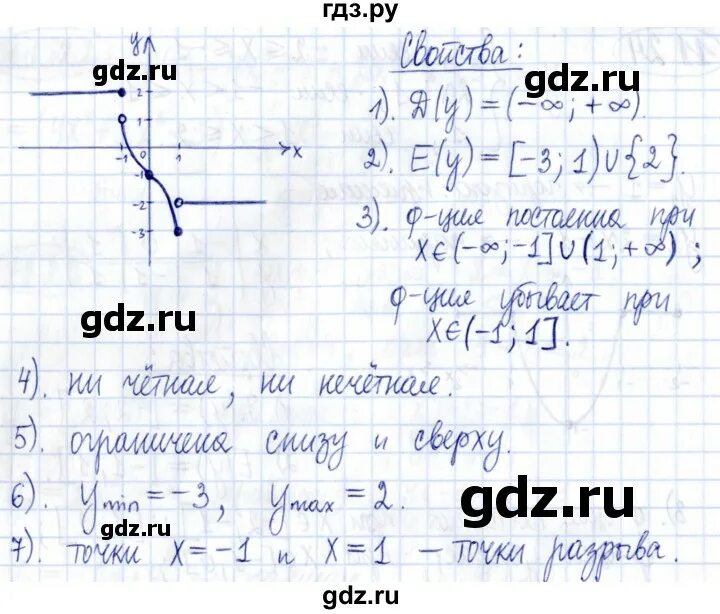 гдз.ру
gdz.ru
Свойства:
gdz.ru
1). D(y) = (-∞; +∞).
2). E(y) = [-3; 1) ∪ {2}.
3). ф-ция постоянна при
x ∈ (-∞; -1] ∪ (1; +∞);
ф-ция убывает при
x ∈ (-1; 1].
y
2
1
-1 0 1 x
-1
-2
-3
gdz.ru
gdz.ru
4). ни чётная, ни нечётная.
5). ограничена снизу и сверху.
6). y min = -3, y max = 2.
gdz.ru
gdz.ru
7). точки x = -1 и x = 1 – точки разрыва.
gdz.ru